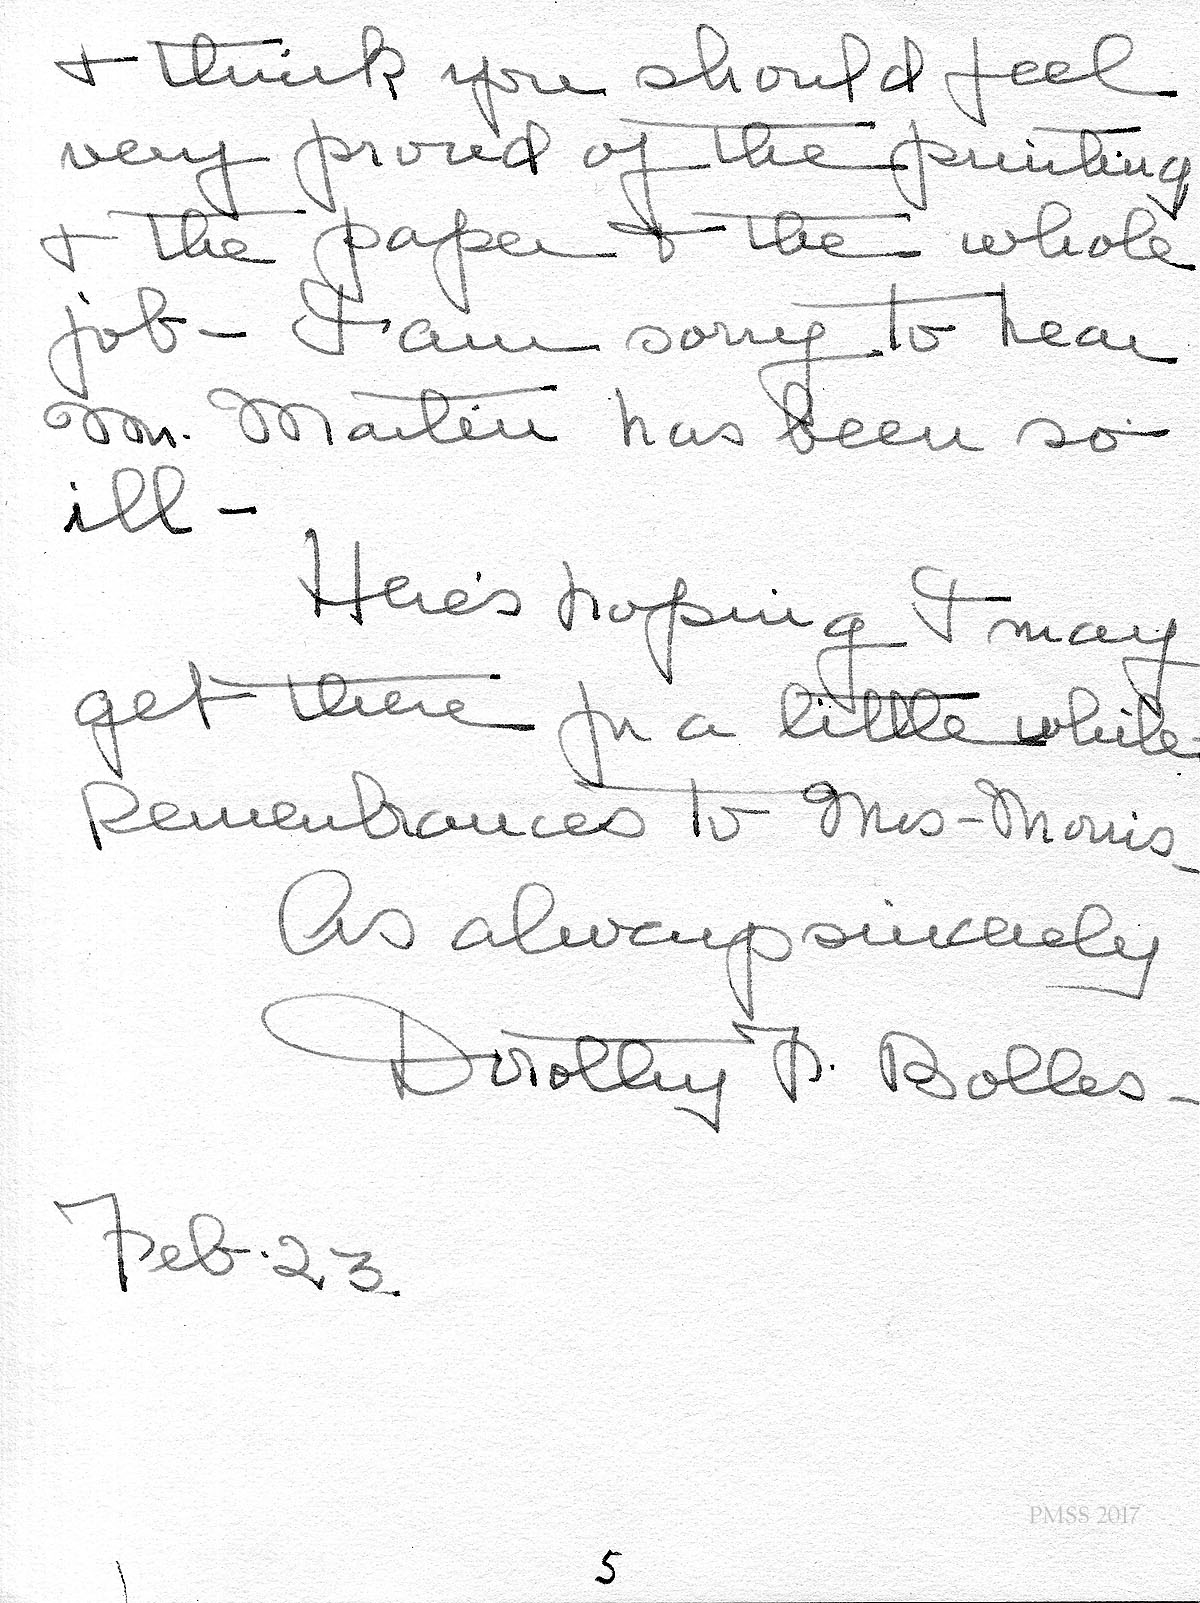 & think you should feel
very proud of the printing
& the paper & the whole
job - I am sorry to hear
Mr. Martin has been so
ill -
Here's hoping I may
get there for a little while -
Remembrances to Mrs - Morris -
As always sincerely
Dorothy F. Bolles -
Feb. 23.
PMSS 2017
5